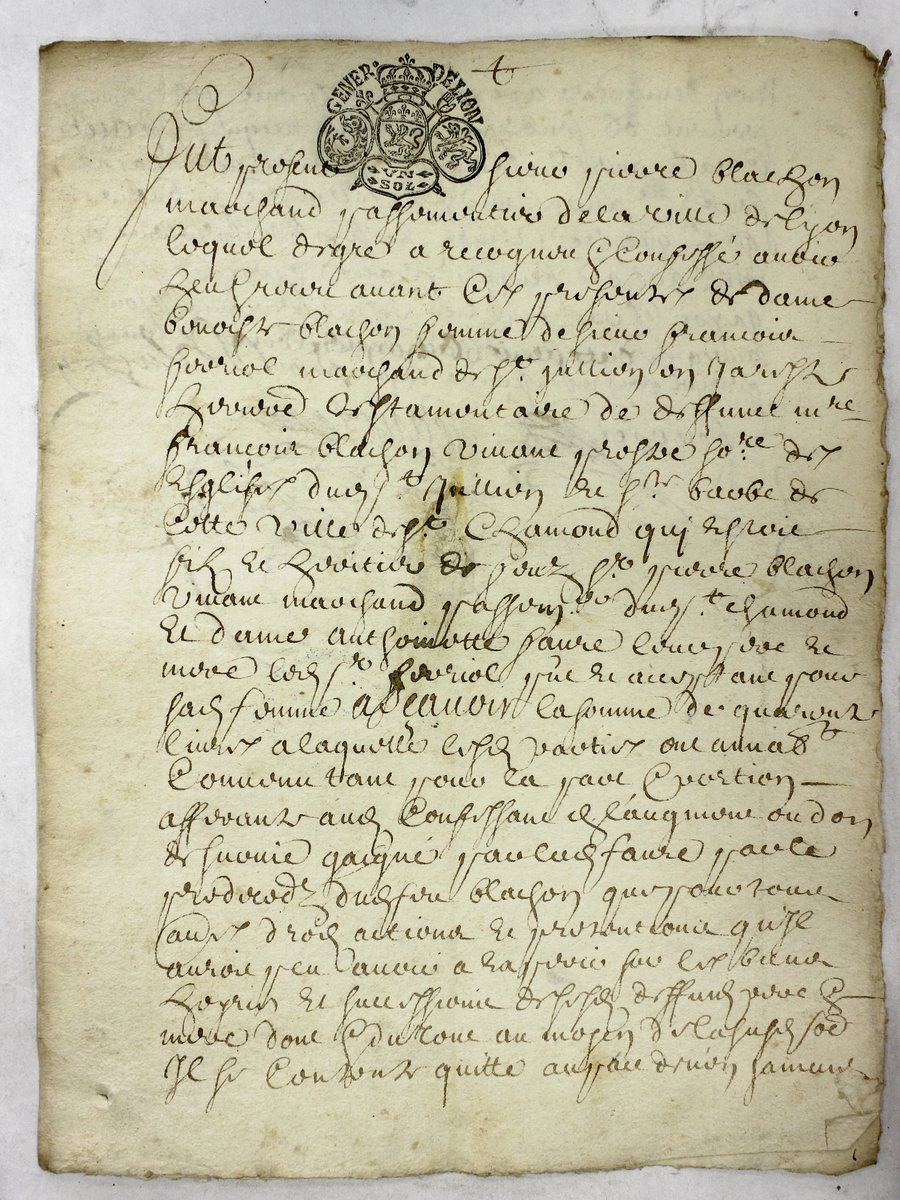 GENER. DE LION
UN
SOL
fut present sieur pierre blachon
marchand passementier de la ville de Lyon
lequel de gré a recogneu & confessé avoir
heu & receu avant ces presentes de dame
benoiste blachon femme de sieur françois
ferriol marchand de st jullien en jarestz
heritiere testamentaire de deffunct mre
françois blachon vivant prestre sore des
esglises dud st jullien et ste barbe de
cette ville de st chamond qui estoit
fils et heritier de feuz sr pierre blachon
vivant marchand passemre dud st chamond
et dame anthoinette faure leurs pere et
mere led sr ferriol pnt et acceptant pour
sad femme a sçavoir la somme de quarante
livres a laquelle lesd parties ont amiabt
convenu tant pour la part & portion
afferante aud confessant de l'augment ou don
de survie gaigné par lad faure par le
predecedz dud feu blachon que pour tous
autres droitz actions et pretentions qu'il
auroit peu avoir a et sur les biens
hoyries et successions desd deffuntz pere &
mere dont & du tout au moyen de la susd soe
Il se contente quitte avec pacte de n'en jamais